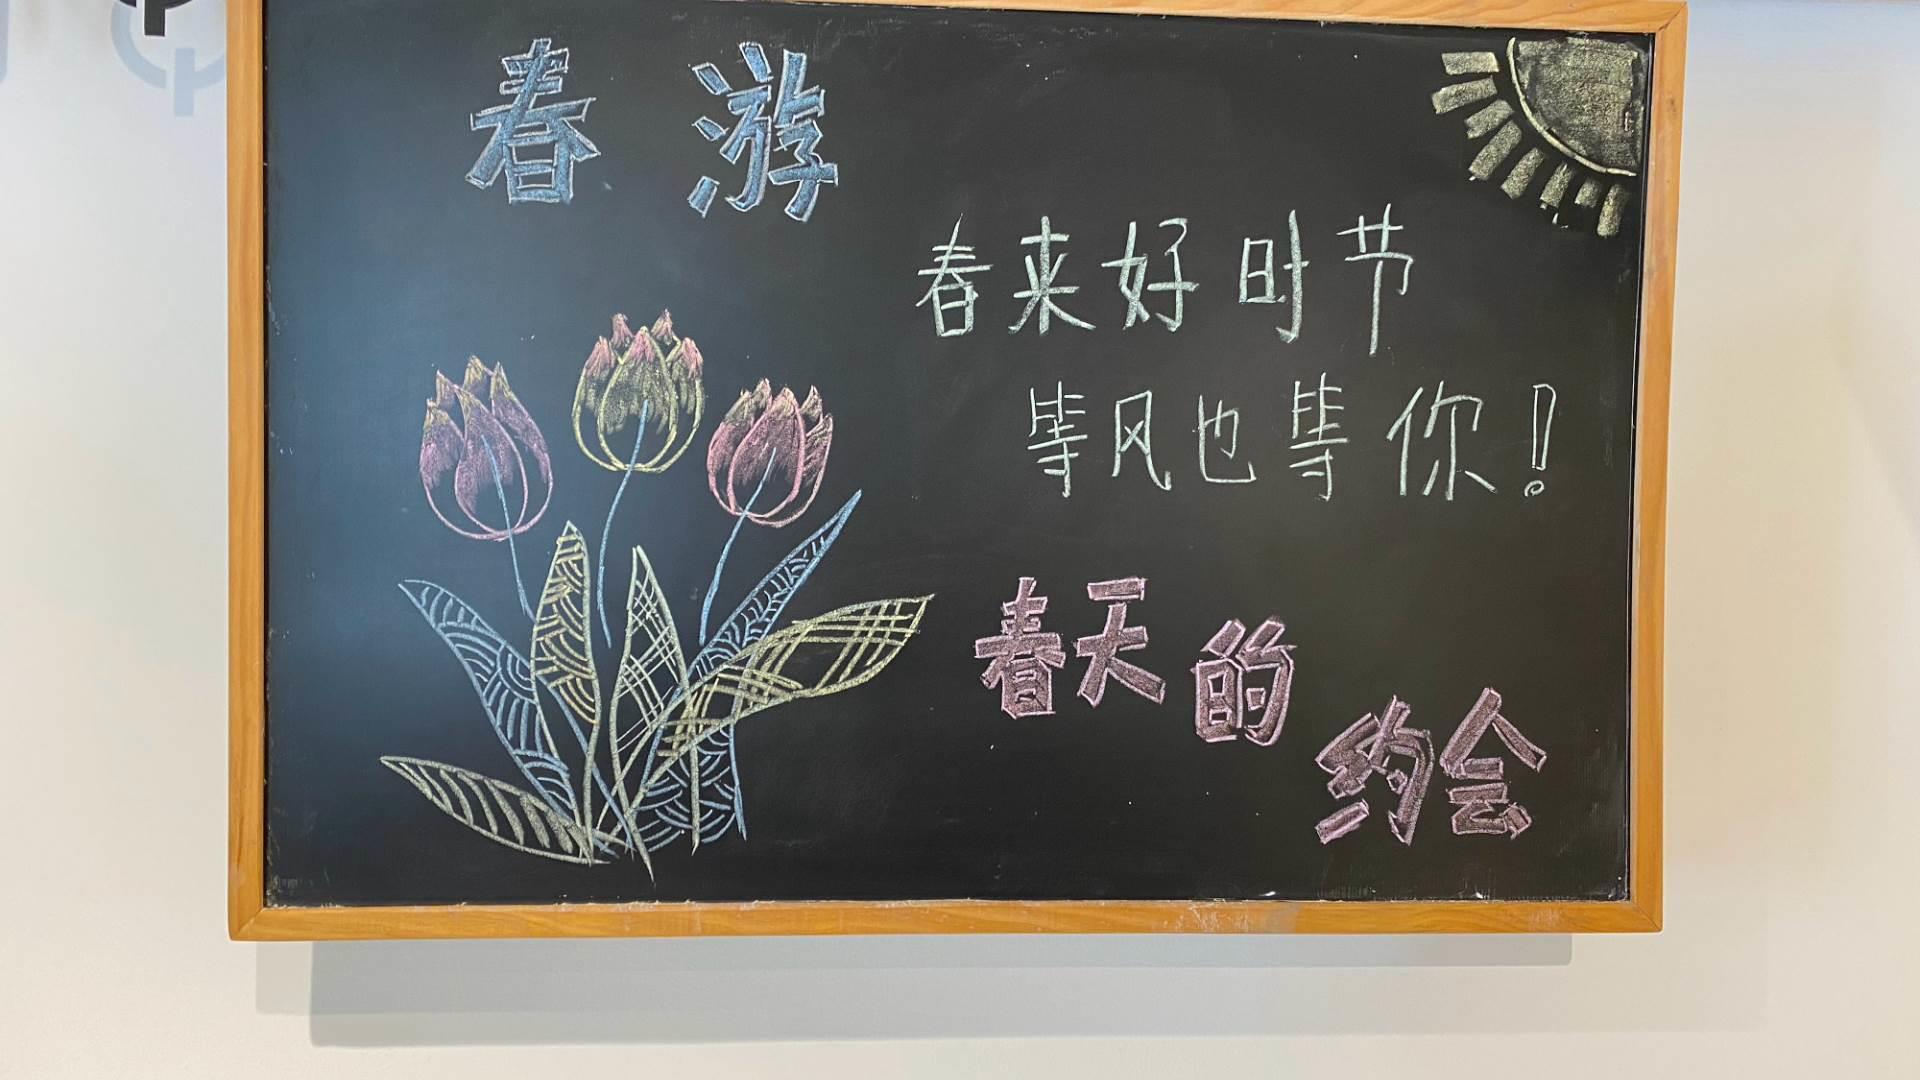 春游
春来好时节
等风也等你!
春天的约会